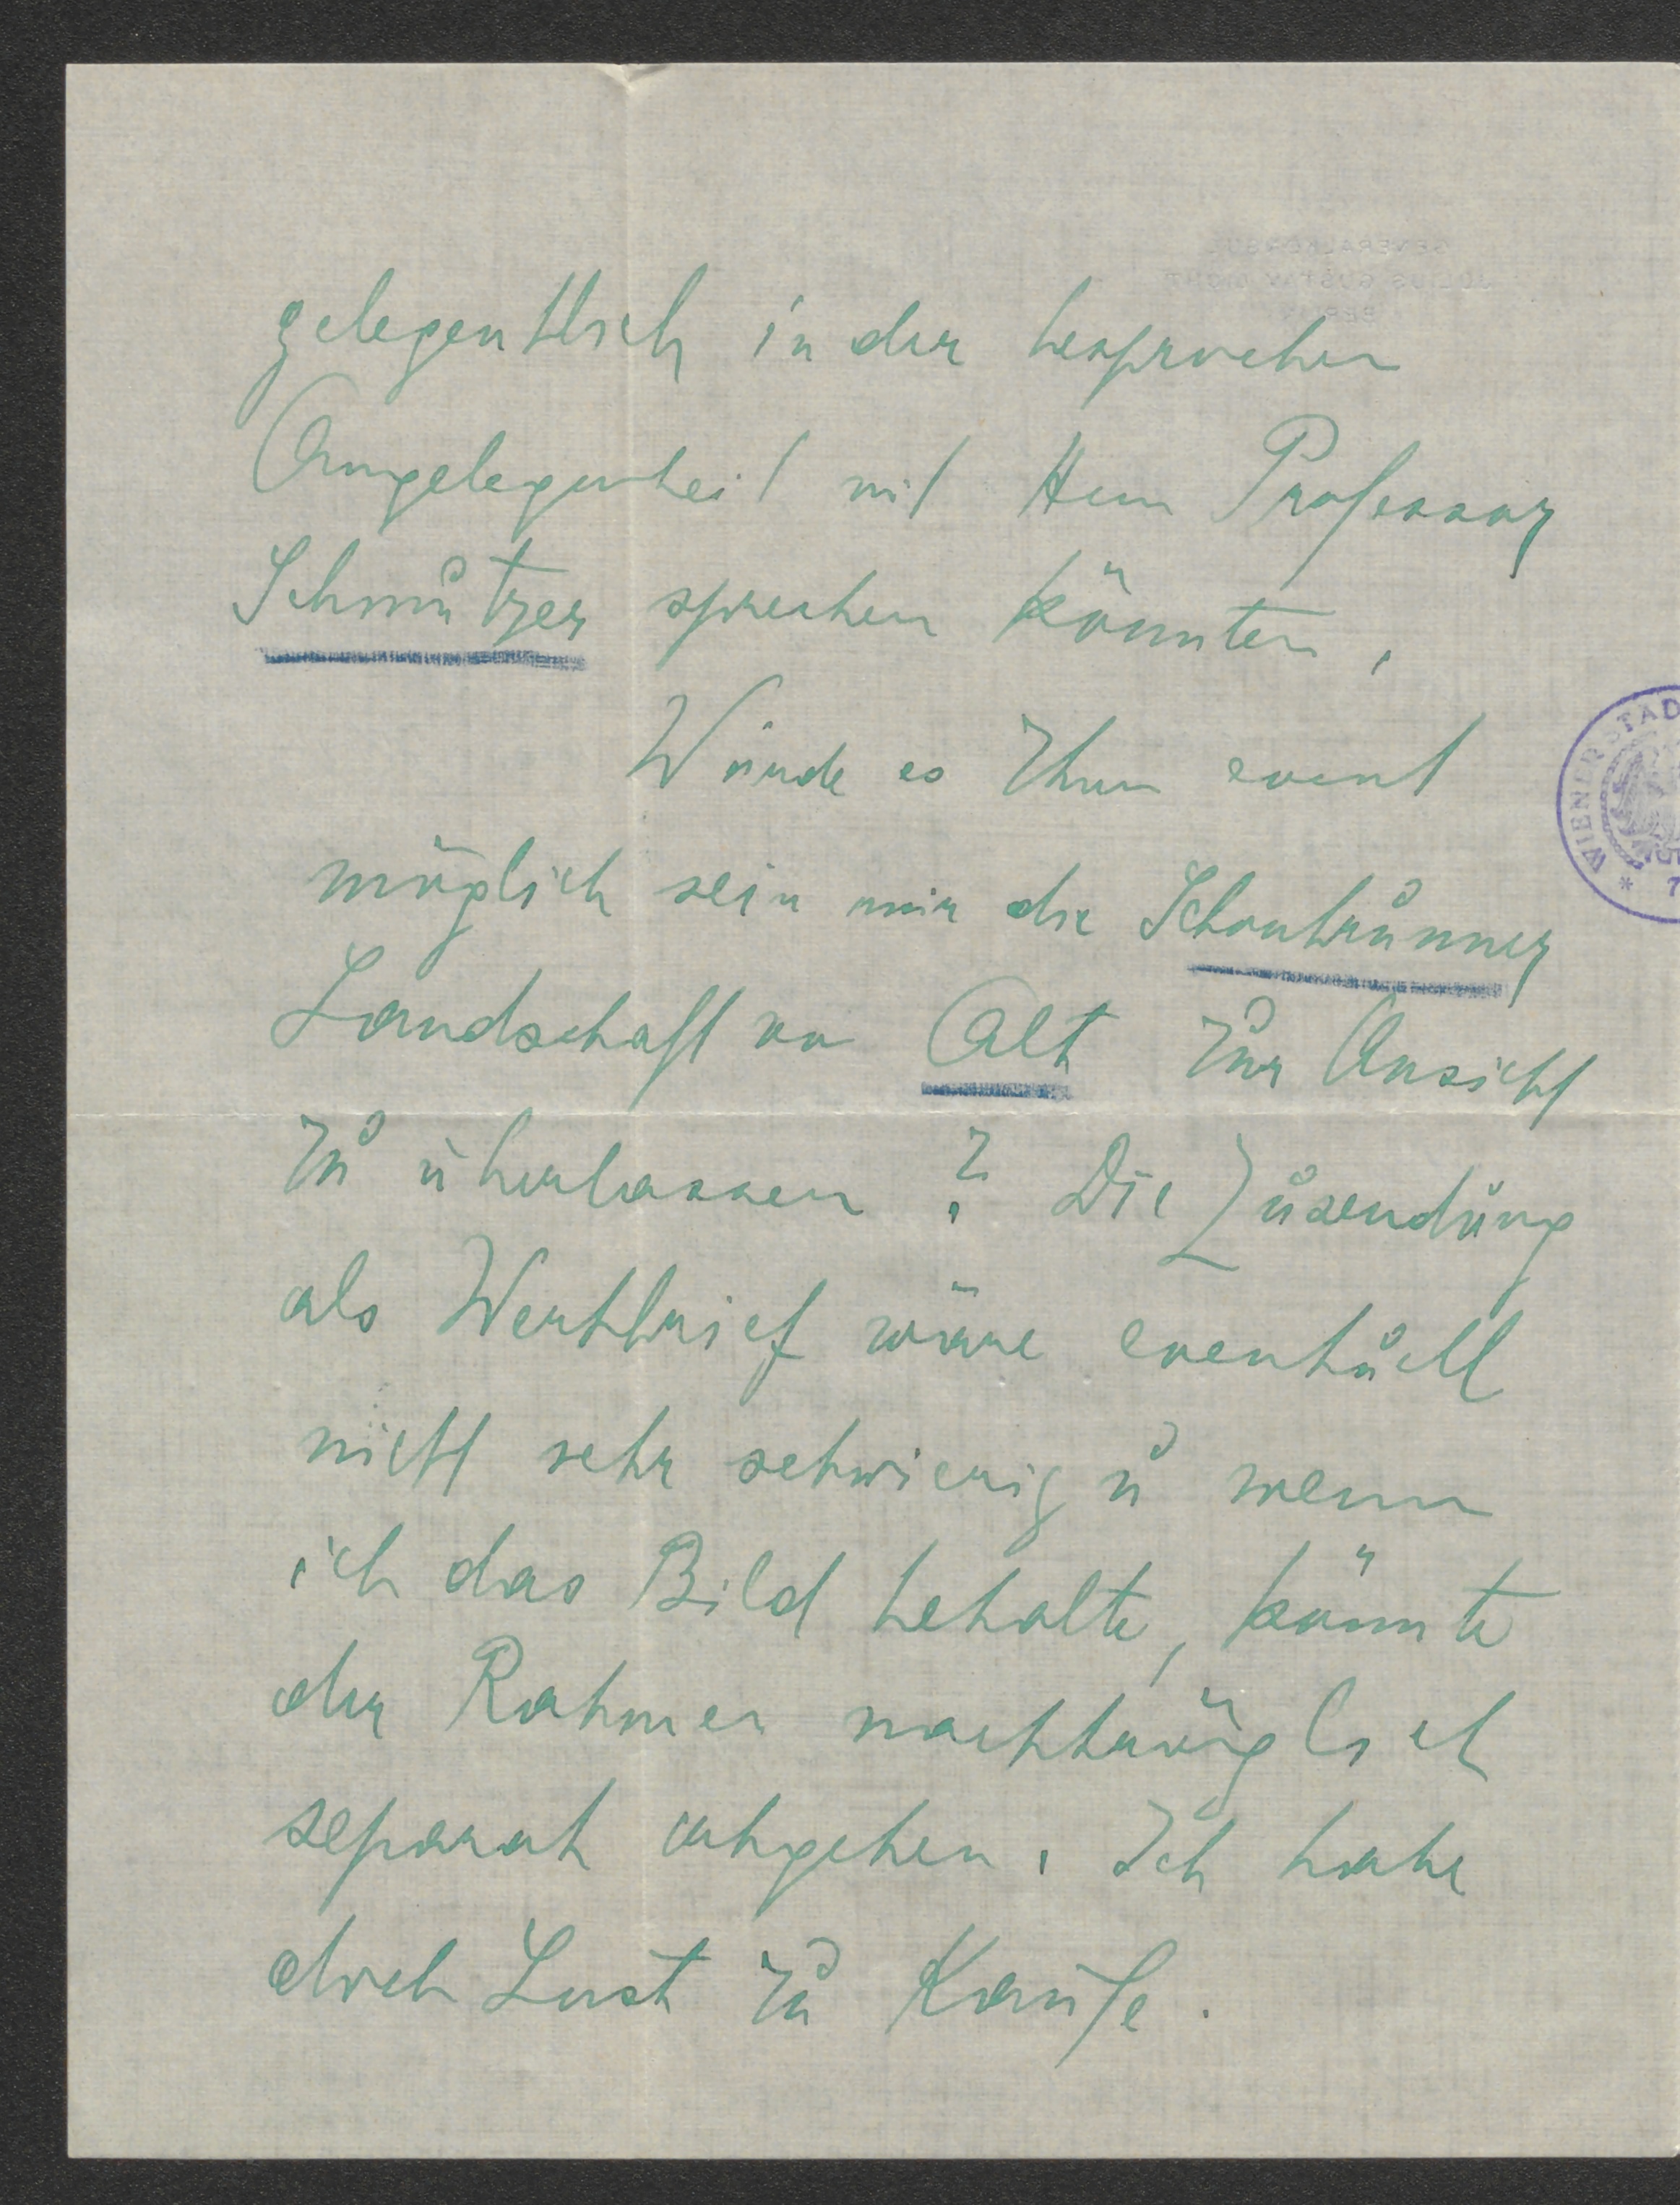 gelegentlich in der besprochen
Angelegenheit mit Herrn Professor
Schmutzer sprechen könnten.
Würde es Ihnen event
möglich sein mir die Schonbrunner
Landschaft von Alt zur Ansicht
zu überlassen? Die Zusendung
als Werthbrief wäre eventuell
nicht sehr schwierig u wenn
ich das Bild behalte, könnte
der Rahmen nachträglich
separat abgehen. Ich habe
doch Lust zu Kaufe.
GENERALKONSUL
JULIUS GUSTAV LICHT
BERLIN
WIENER STAD
* 7